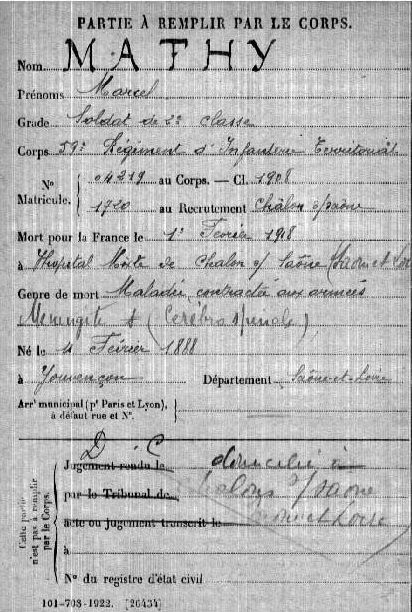 PARTIE À REMPLIR PAR LE CORPS.
Nom MATHY
Prénoms Marcel
Grade Soldat de 2e classe
Corps 59e Régiment d'Infanterie Territorial
N° Matricule. 04219 au Corps. — Cl. 1908
1720 au Recrutement Châlon s/saône
Mort pour la France le 1er Février 1918
à Hôpital Mixte de Chalon s/ Saône (Saône et Loire
Genre de mort Maladie contractée aux armées
Méningite (Cérébro spinale)
Né le 4 Février 1888
à Département Saône-et-Loire
Arrt municipal (pr Paris et Lyon),
à défaut rue et N°.
D C
Cette partie n'est pas à remplir par le Corps.
Jugement rendu le domicilié à
par le Tribunal de Chalons s/saone
acte ou jugement transcrit le saone et Loire
à
N° du registre d'état civil
101-708-1922. [26434]